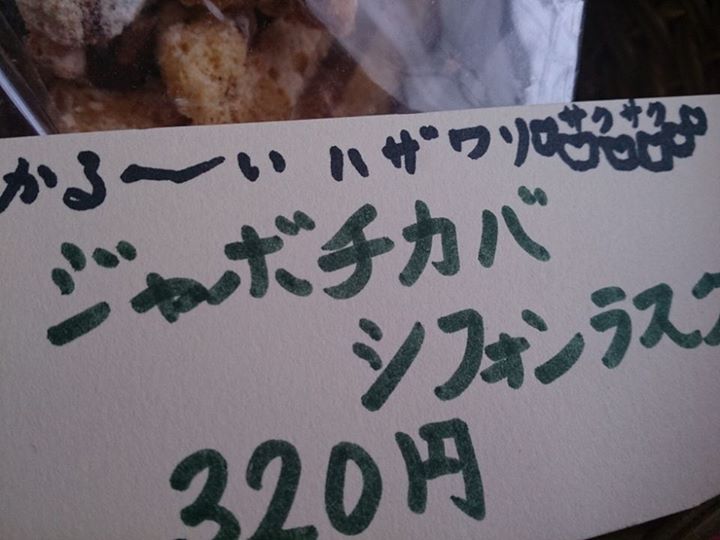 かる〜い ハザワリ サクサク
ジャボチカバ
シフォンラスク
320円